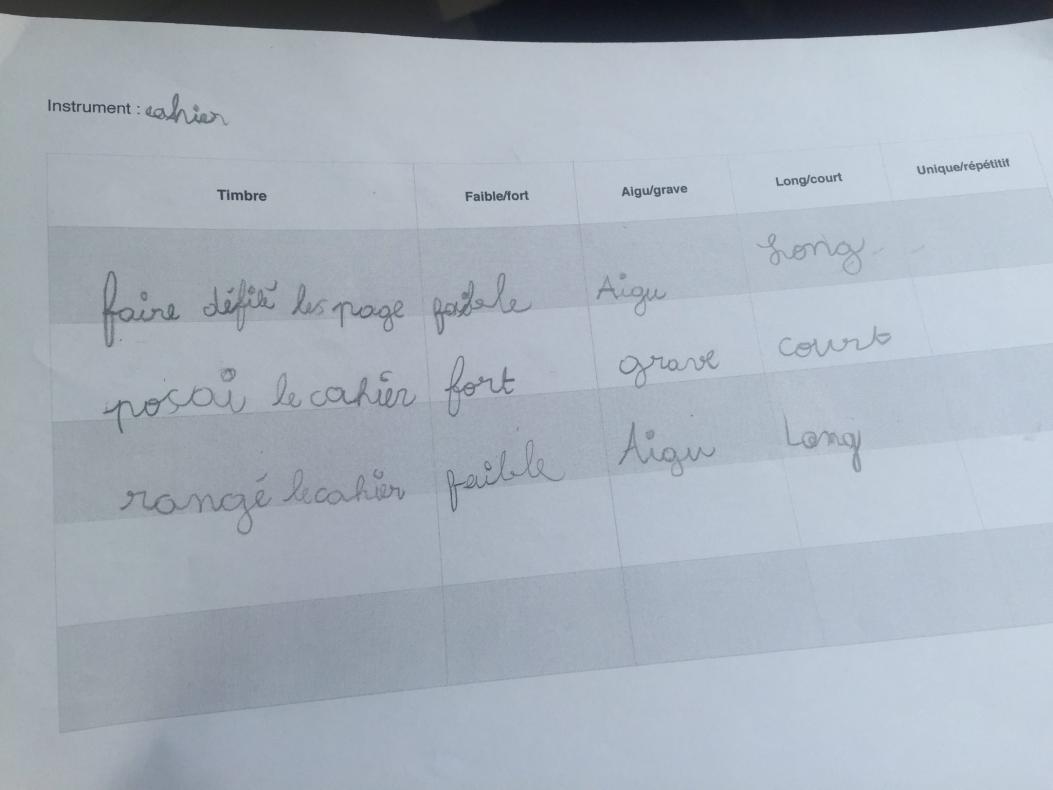 Instrument : cahier
Timbre Faible/fort Aigu/grave Long/court Unique/répétitif
faire défilé les page faible Aigu Long
posai le cahier fort grave court
rangé le cahier faible Aigu Long